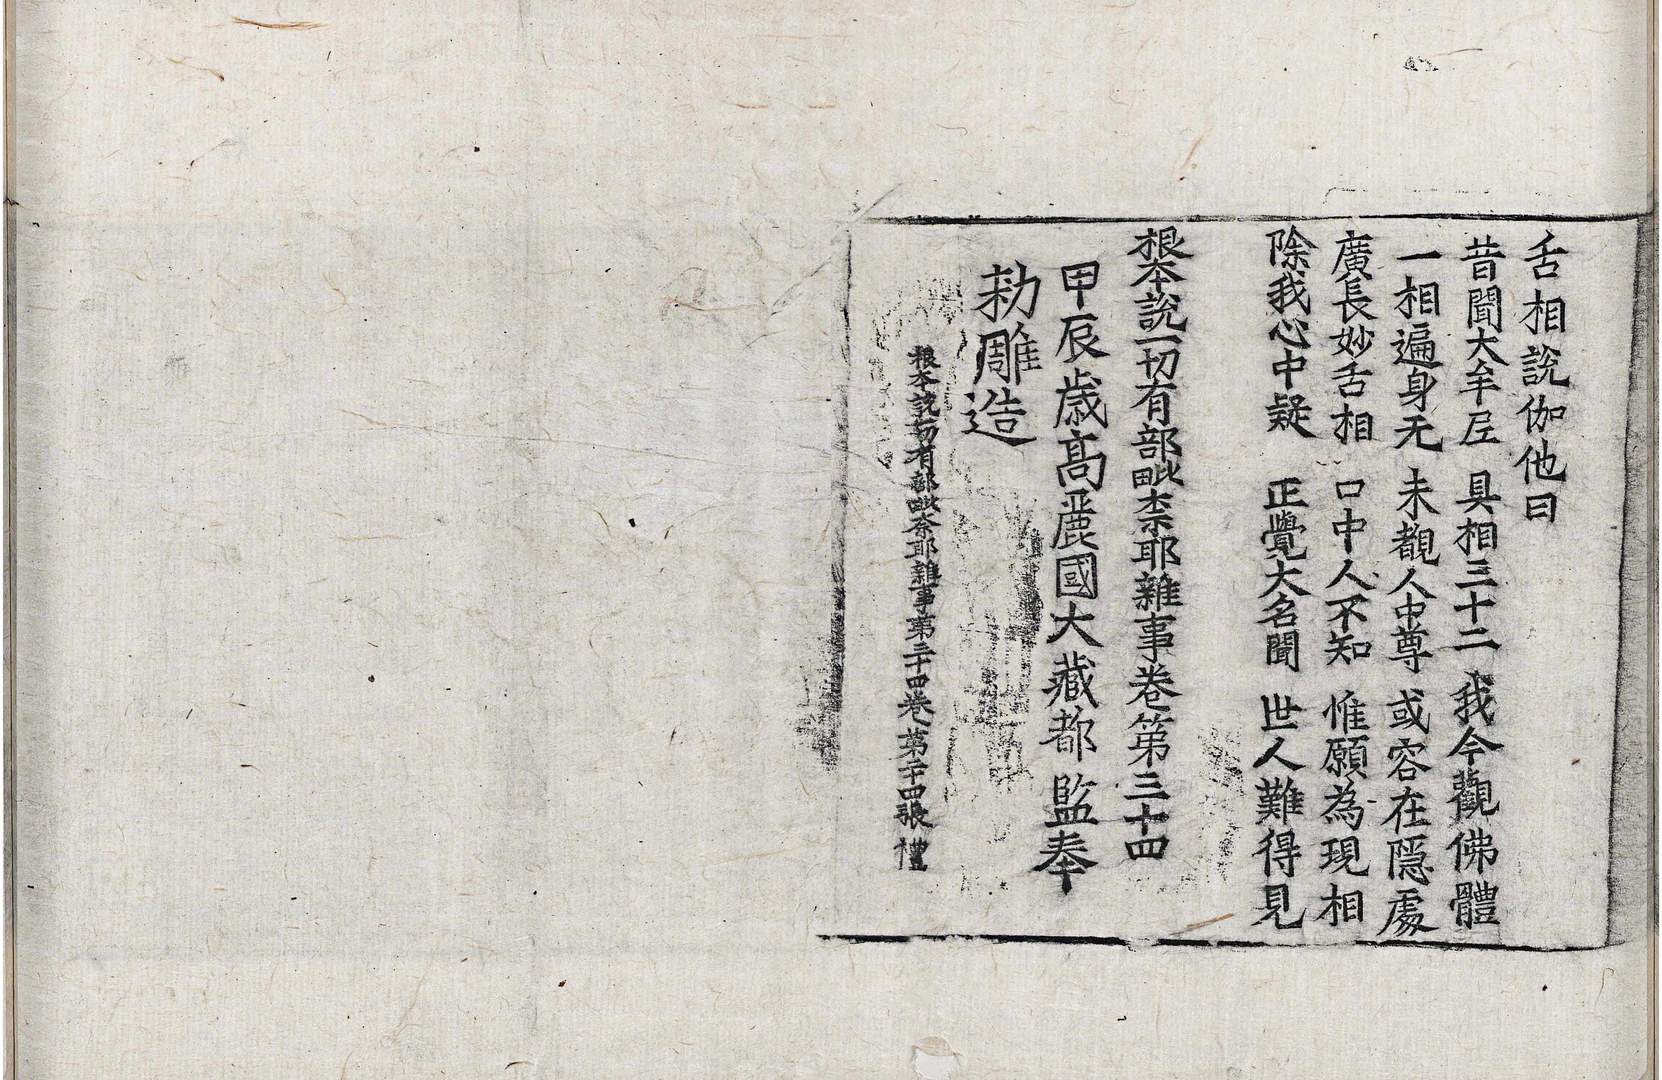 舌相說伽他曰
昔聞大牟尼 具相三十二 我今觀佛體
一相遍身无 未覩人中尊 或容在隱處
廣長妙舌相 口中人不知 惟願為現相
除我心中疑 正覺大名聞 世人難得見
根本說一切有部毗奈耶雜事卷第三十四
甲辰歳高麗國大藏都監奉
勑雕造
根本說一切有部毗奈耶雜事第三十四卷 第二十四張 禮